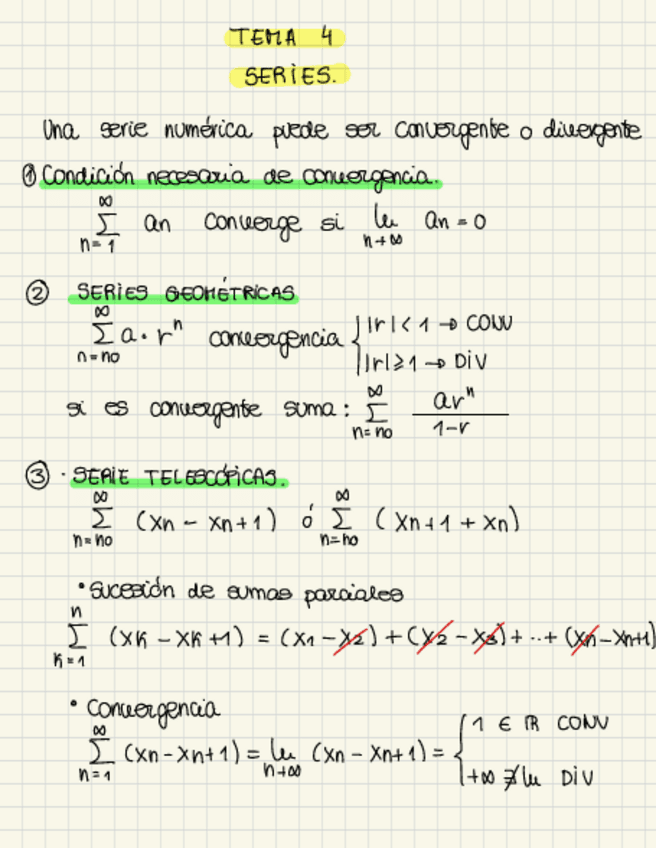 TEMA 4
SERIES.
Una serie numérica puede ser convergente o divergente
① Condición necesaria de convergencia.
∞
∑ an converge si lim an = 0
n=1 n→∞
② SERIES GEOMÉTRICAS
∞
∑ a · rⁿ convergencia { |r| < 1 → CONV
n=no |r| ≥ 1 → DIV
si es convergente suma: ∑ (n=no, ∞) arⁿ / 1-r
③ · SERIE TELESCÓPICAS.
∞ ∞
∑ (xn - xn+1) ó ∑ (xn+1 + xn)
n=no n=no
• Sucesión de sumas parciales
n
∑ (xk - xk+1) = (x1 - x2) + (x2 - x3) + ··· + (xn - xn+1)
k=1
• Convergencia
∞
∑ (xn - xn+1) = lim (xn - xn+1) = { 1 ∈ ℝ CONV
n=1 n→∞ +∞ ∄ lim DIV